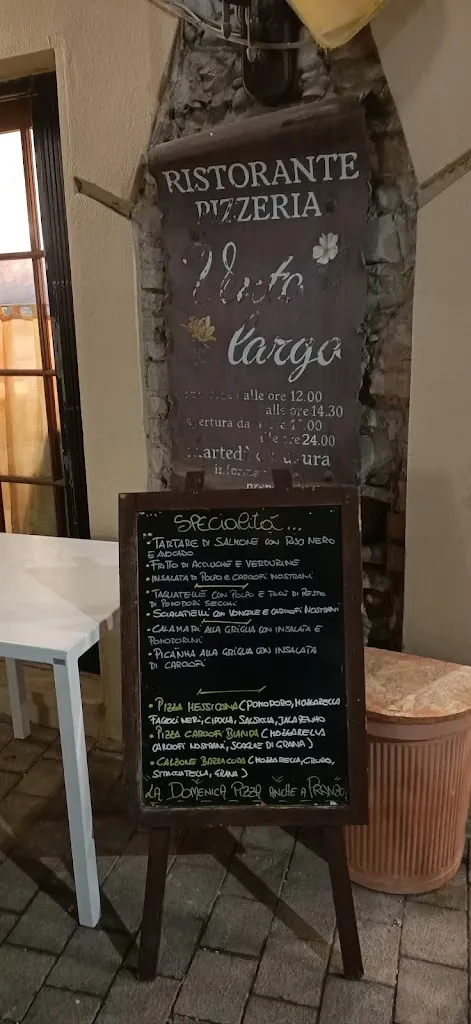 RISTORANTE
PIZZERIA
largo
alle ore 12.00
alle ore 14.30
apertura da
alle ore 24.00
martedì
SPECIALITÁ...
• TARTARE DI SALMONE CON RISO NERO
E AVOCADO
• FRITTO DI ACCIUGHE E VERDURINE
• INSALATA DI POLPO E CARCIOFI NOSTRANI
• TAGLIATELLE CON POLPO E
DI POMODORI SECCHI
• SCIALATIELLI CON VONGOLE E CARCIOFI NOSTRANI
• CALAMARI ALLA GRIGLIA CON INSALATA E
POMODORINI
• PICANHA ALLA GRIGLIA CON INSALATA
DI CARCIOFI
• PIZZA MESSICANA (POMODORO, MOZZARELLA
FAGIOLI NERI, CIPOLLA, SALSICCIA, JALAPENHO
• PIZZA CARCIOFI BIANCA (MOZZARELLA
CARCIOFI NOSTRANI, SCAGLIE DI GRANA)
• CALZONE BARRACUDA (MOZZARELLA, CRUDO,
STRACCIATELLA, GRANA)
LA DOMENICA PIZZA ANCHE A PRANZO